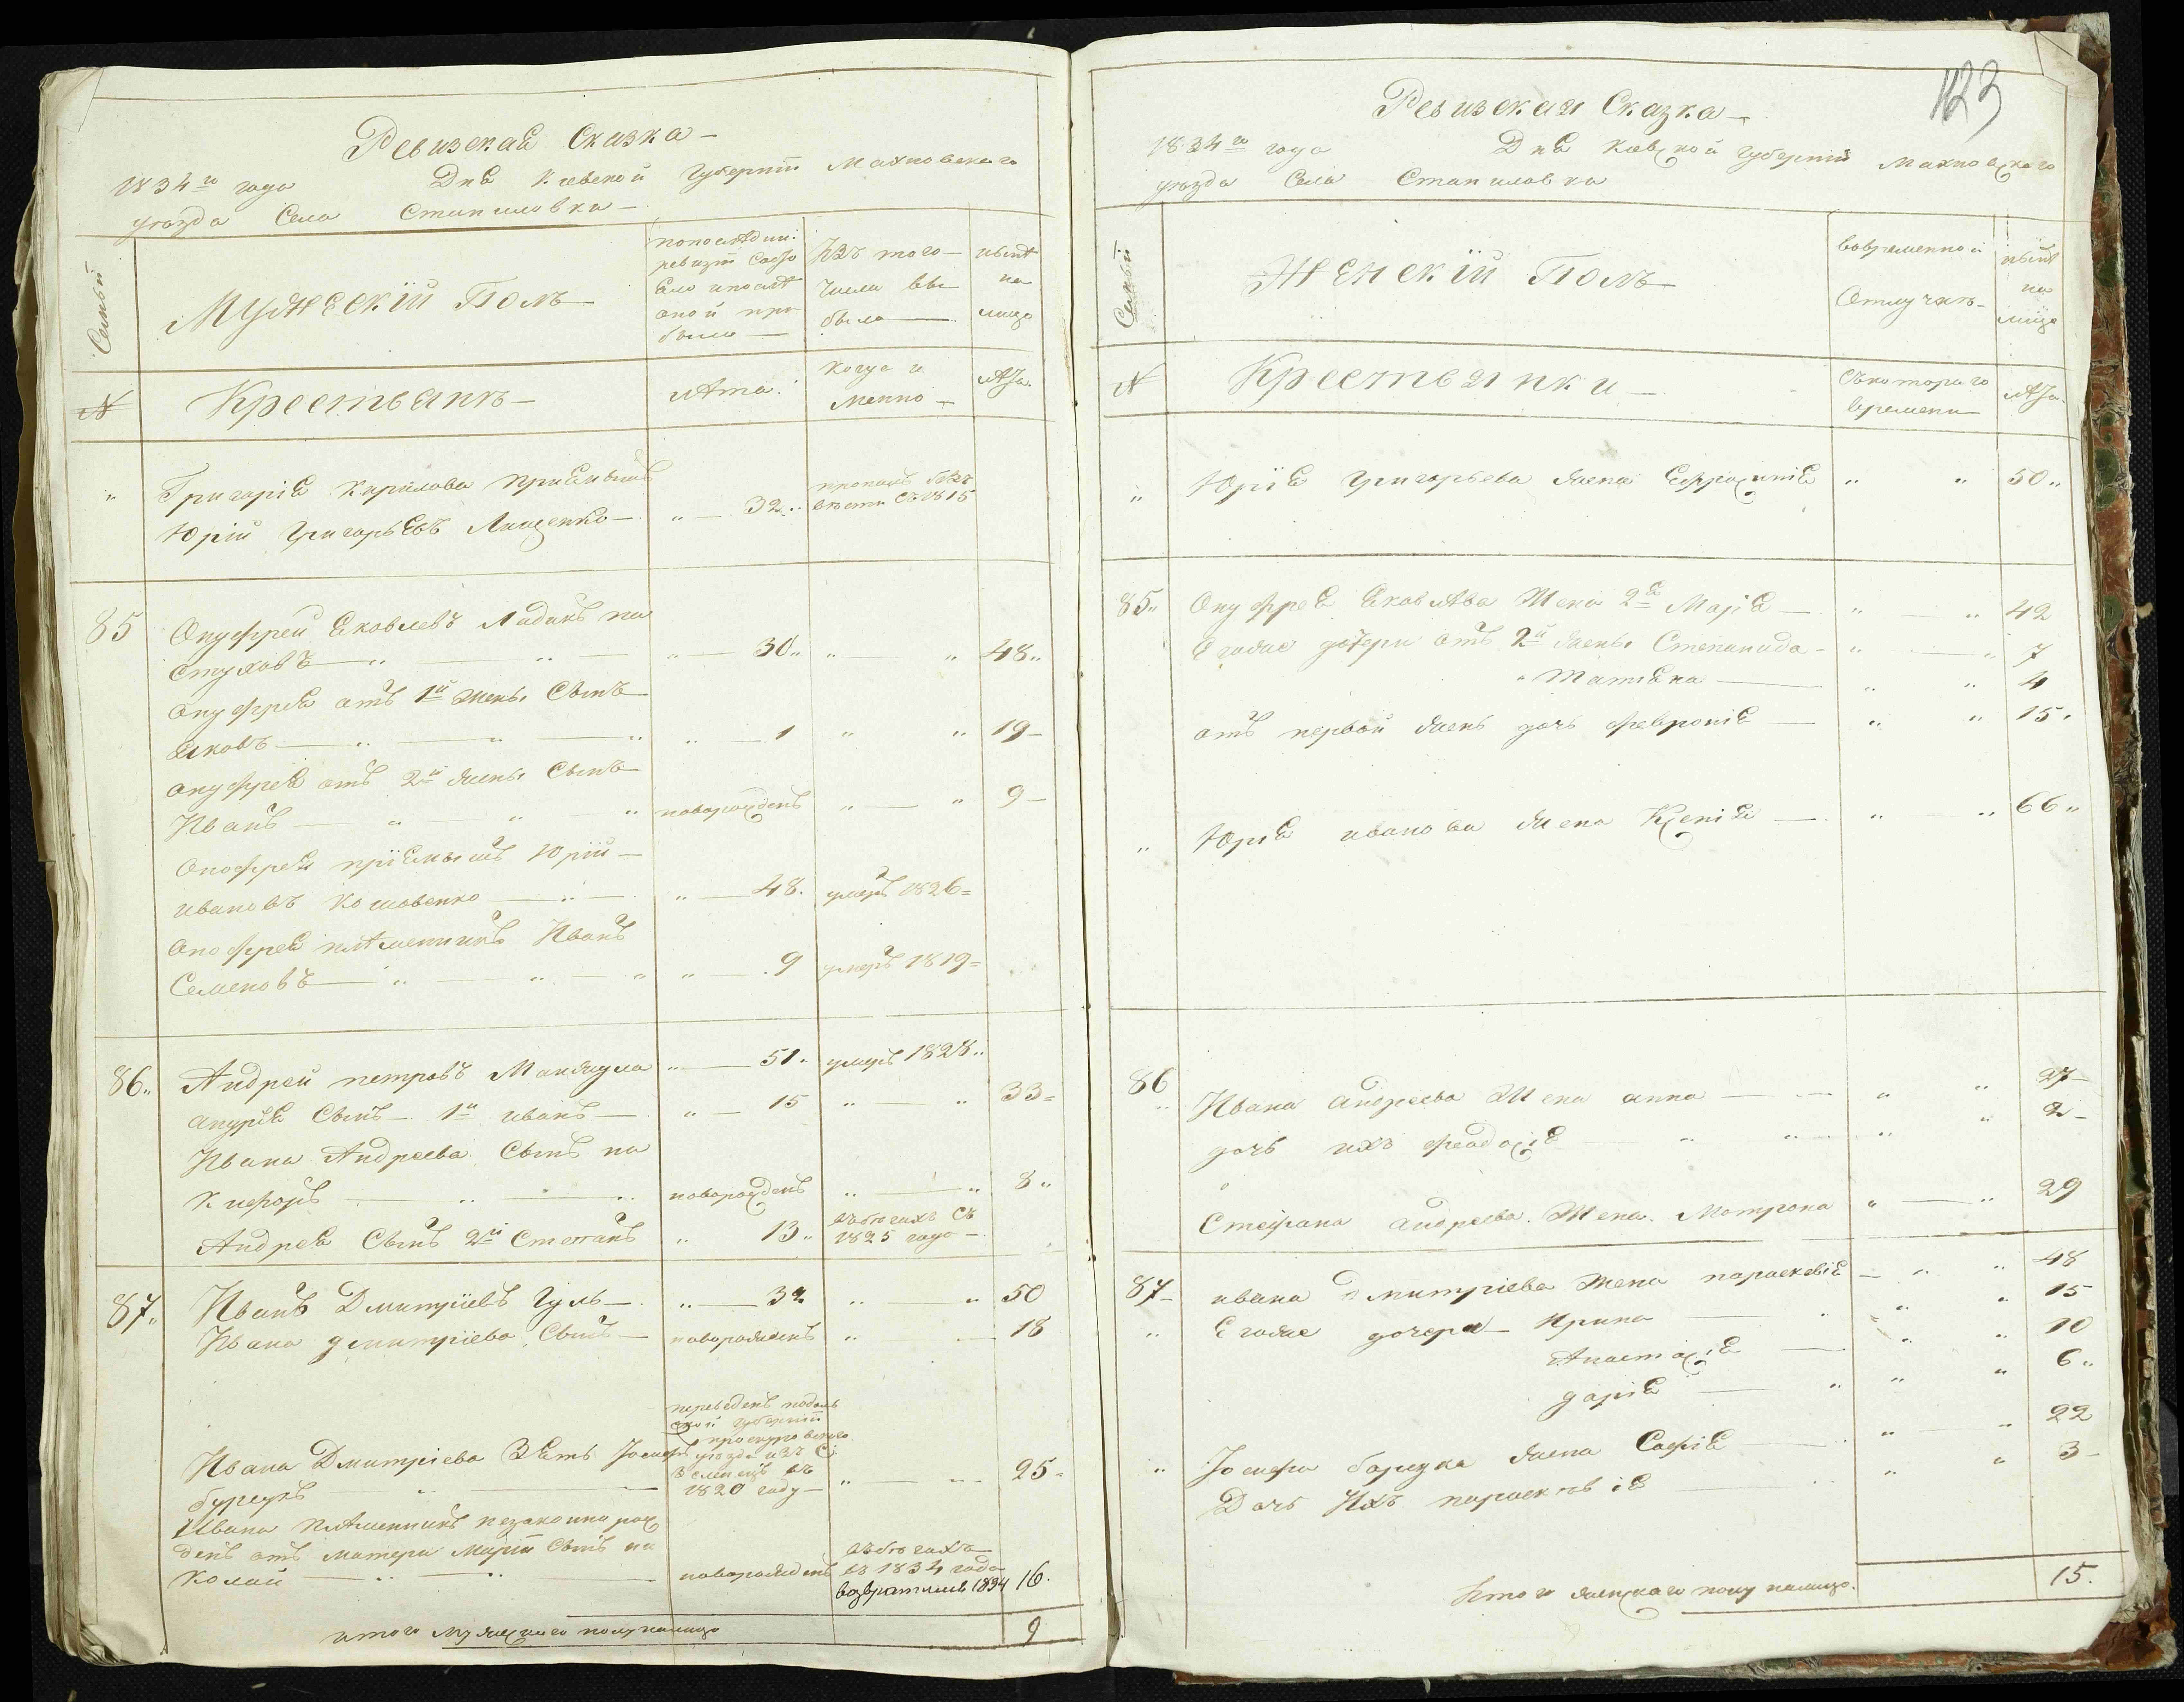 Ревизская Сказка
1834го года Дня Киевской Губерніи Махновскаго
уѣзда Села Станиловка
Семьи
Мужескій Полъ
попослѣдни:
ревизіи Состо
яло и послѣ
оной при
было
Изъ того
числа вы
было
нынѣ
на
лицо
№
Крестьянъ
лѣта
когда и
менно
лѣта
Григорія Кирилова приемышъ
Юрій Григорьевъ Лищенко
32
пропалъ безъ
вѣсти съ 1815
85
Онуфрей Яковлевъ Ладакъ па
стуховъ
30
48
Онуфрея отъ 1й жены Сынъ
Яковъ
1
19
Онуфрея отъ 2й жены Сынъ
Иванъ
новорожденъ
9
Онофрея пріемышъ Юрій
Ивановъ Кошовенко
48
умеръ 1826
Онофрея племенникъ Иванъ
Семеновъ
9
умеръ 1819
86
Андрей петровъ Манжула
51
умеръ 1828
Андрея Сынъ 1й иванъ
15
33
Ивана Андреева Сынъ на
Кифоръ
новорожденъ
8
Андрея Сынъ 2й Степанъ
13
въ бѣгахъ съ
1825 года
87
Иванъ Дмитріевъ Гуль
32
50
Ивана дмитріева Сынъ
новорожденъ
18
переведенъ подоль
ской губерніи
проскуровскаго
уезда изъ С:
1820 году
Ивана Дмитріева Зять Іосифъ
бурсукъ
25
Ивана племенникъ незаконно рож
денъ отъ матери Маріи Сынъ ни
колай
новорожденъ
въ бѣгахъ
съ 1834 года
возвратился 1834
16
итого мужескаго полу налицо
9
123
Ревизская Сказка
1834го года Дня Киевской Губерніи Махновскаго
уѣзда Села Станиловка
Семьи
Женскій Полъ
вовременной
Отлучкѣ
нынѣ
на
лицо
№
Крестьянки
Съкотораго
времени
лѣта
Юрія Григорьева жена Ефросинія
50
85
Онуфрея Яковлѣва Жена 2я Марія
42
Егоже дочери отъ 2й жены Степанида
7
Татіяна
4
отъ первой жены дочь Февронія
15
Юрія иванова жена Ксенія
66
86
Ивана Андреева Жена анна
27
дочь ихъ феодосія
2
Стефана Андреева Жена Матрона
29
87
ивана Дмитріева Жена параскевія
48
Егоже дочери Ирина
15
Анастасія
10
дарія
6
Іосифа барсука жена Софія
22
Дочь Ихъ параскевія
3
Итого женскаго полу налицо
15.